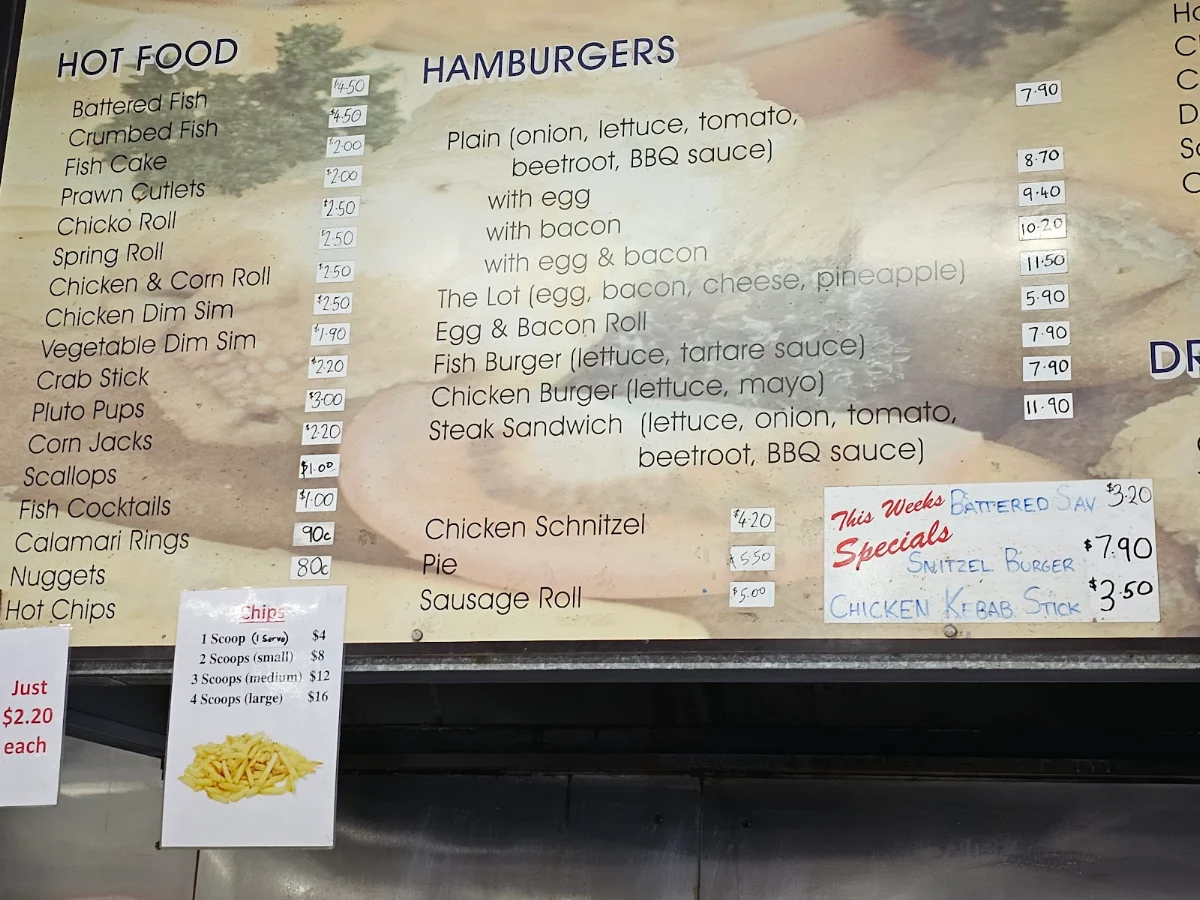 HOT FOOD
Battered Fish $4.50
Crumbed Fish $4.50
Fish Cake $2.00
Prawn Cutlets $2.00
Chicko Roll $2.50
Spring Roll $2.50
Chicken & Corn Roll $2.50
Chicken Dim Sim $2.50
Vegetable Dim Sim $1.90
Crab Stick $2.20
Pluto Pups $3.00
Corn Jacks $2.20
Scallops $1.00
Fish Cocktails $1.00
Calamari Rings 90c
Nuggets 80c
Hot Chips
HAMBURGERS
Plain (onion, lettuce, tomato, 7.90
beetroot, BBQ sauce)
with egg 8.70
with bacon 9.40
with egg & bacon 10.20
The Lot (egg, bacon, cheese, pineapple) 11.50
Egg & Bacon Roll 5.90
Fish Burger (lettuce, tartare sauce) 7.90
Chicken Burger (lettuce, mayo) 7.90
Steak Sandwich (lettuce, onion, tomato, 11.90
beetroot, BBQ sauce)
Chicken Schnitzel $4.20
Pie $5.50
Sausage Roll $5.00
This Weeks Specials
BATTERED SAV $3.20
SNITZEL BURGER $7.90
CHICKEN KEBAB STICK $3.50
Just
$2.20
each
Chips
1 Scoop (1 Serve) $4
2 Scoops (small) $8
3 Scoops (medium) $12
4 Scoops (large) $16